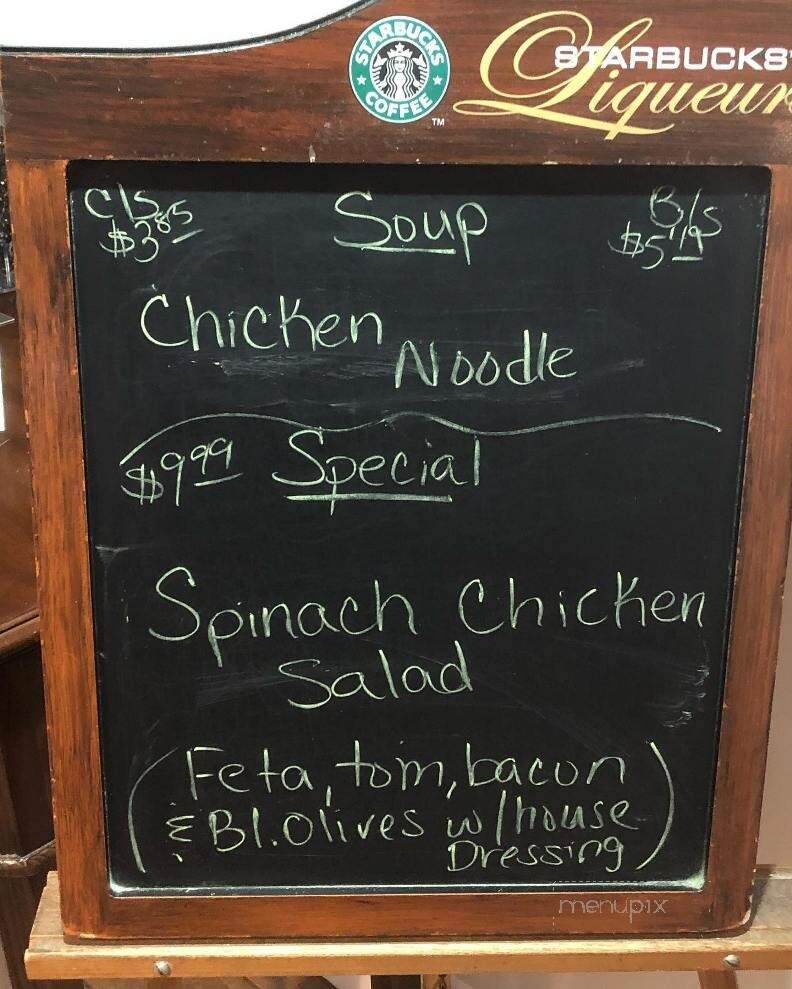 STARBUCKS
COFFEE
TM
STARBUCKS
Liqueur
C/S
$3.85
Soup
B/S
$5.19
Chicken
Noodle
$9.99 Special
Spinach Chicken
Salad
(Feta, tom, bacon
& Bl. Olives w/house
Dressing)
menupix